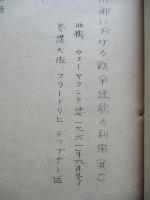 防衛における戦争経験の利用(其二)
西独 ウェーヤクンデ誌一九六一年六月号
参謀大佐 フリードリヒ・テップナー述